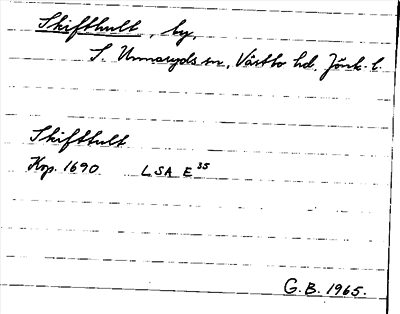 Skifthult, by,
S. Unnaryds sn, Västbo hd. Jönk. l.
Skifthult
Kop. 1690 LSA E 35
G.B. 1965.